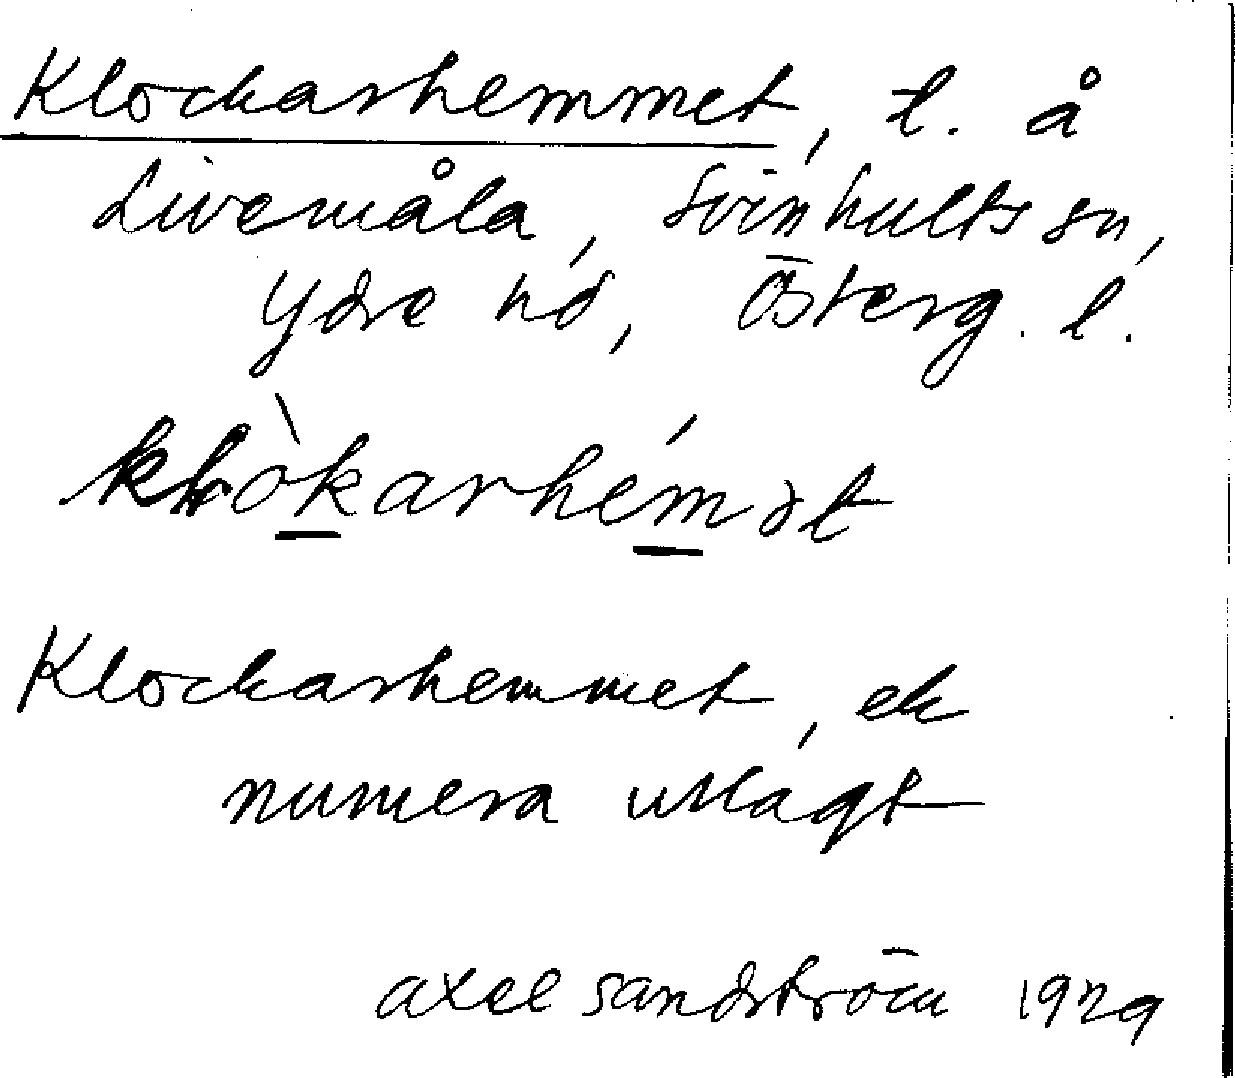 Klockarhemmet, t. å
Livemåla, Svinhults sn,
Ydre hd, Österg. l.
klòkarhémət
Klockarhemmet, ek
numera utlagt
Axel Sandström 1929